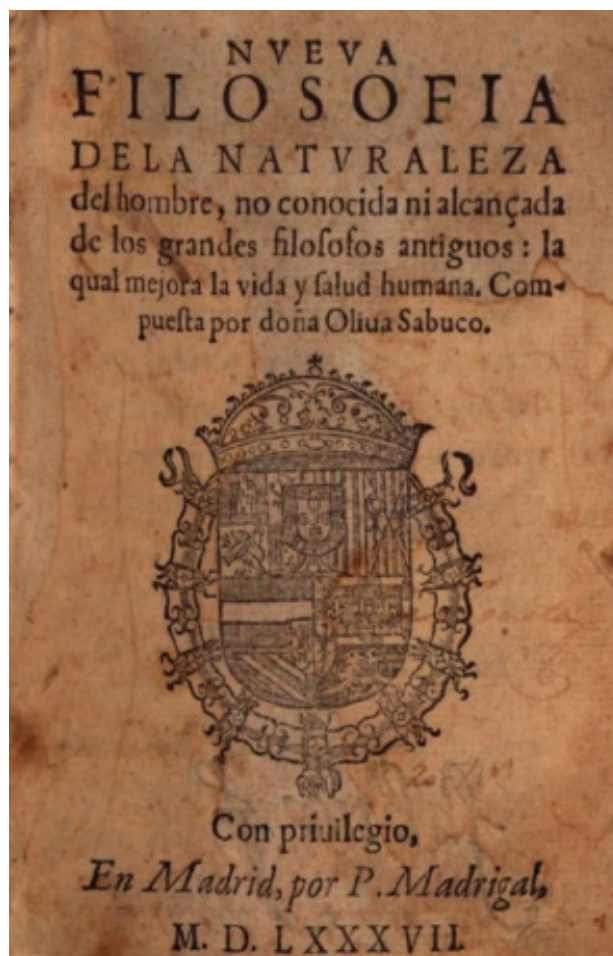 NVEVA
FILOSOFIA
DELA NATVRALEZA
del hombre, no conocida ni alcançada
de los grandes filoſofos antiguos : la
qual mejora la vida y ſalud humana. Com-
pueſta por doña Oliua Sabuco.
Con priuilegio,
En Madrid, por P. Madrigal,
M. D. LXXXVII.